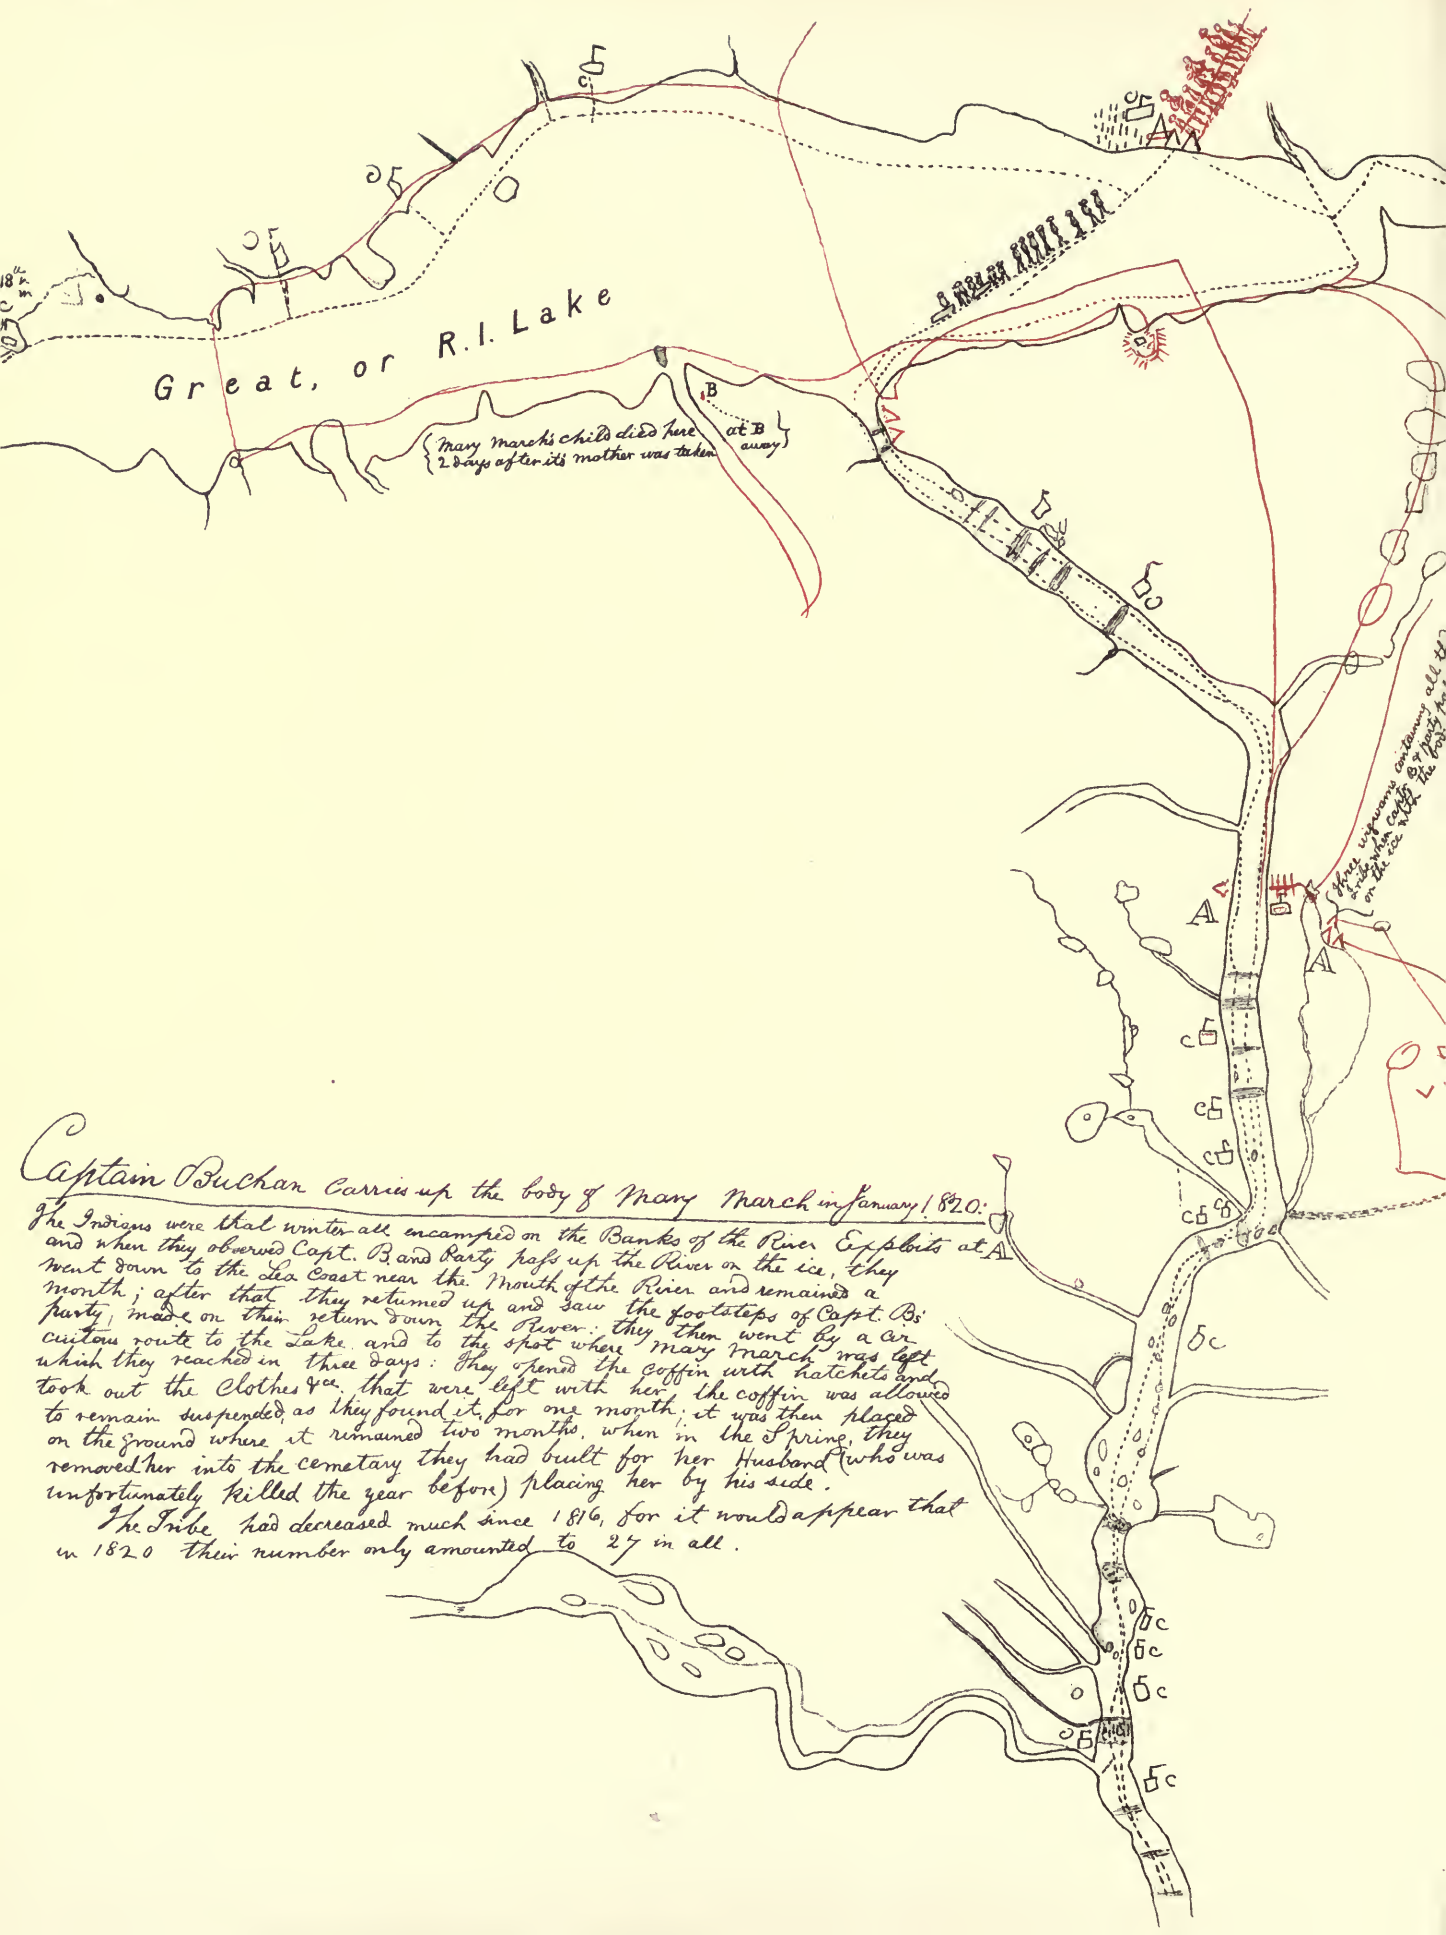 18
C
Great, or R.I. Lake
{Mary March's child died here at B}
{2 days after it's mother was taken away}
B
C
C
C
C
A
C
Three wigwams containing all th
Tribe when captn B & party pa
on the ice with the bod
A
A
C
C
C
C
Captain Buchan carries up the body of Mary March in January 1820:
The Indians were that winter all encamped on the Banks of the River Exploits at A
and when they observed Capt. B. and Party pass up the River on the ice, they
went down to the Sea Coast near the Mouth of the River and remained a
month; after that they returned up and saw the footsteps of Capt. B's
party, made on their return down the River: they then went by a cir
cuitous route to the Lake and to the spot where Mary March was left
which they reached in three days: They opened the coffin with hatchets and
took out the Clothes &ce. that were left with her, the coffin was allowed
to remain suspended, as they found it, for one month; it was then placed
on the ground where it remained two months, when in the Spring, they
removed her into the cemetary they had built for her Husband (who was
unfortunately killed the year before) placing her by his side.
The Tribe had decreased much since 1816, for it would appear that
in 1820 their number only amounted to 27 in all.
C
C
C
C
C